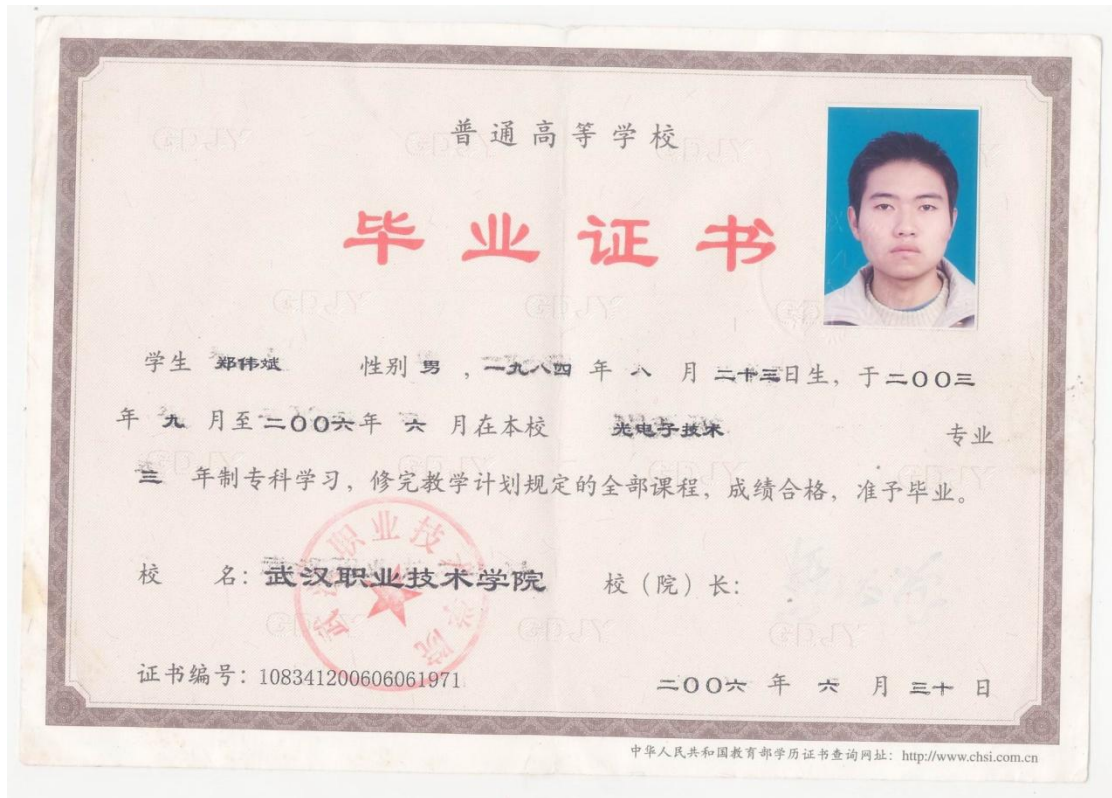 普通高等学校
毕业证书
学生 郑伟斌 性别 男 , 一九八四 年 八 月 二十三日生, 于二〇〇三
年 九 月至二〇〇六年 六 月在本校 光电子技术 专业
三 年制专科学习, 修完教学计划规定的全部课程, 成绩合格, 准予毕业。
校 名: 武汉职业技术学院 校（院）长:
武汉职业技术学院
证书编号: 108341200606061971 二〇〇六 年 六 月 三十 日
中华人民共和国教育部学历证书查询网址: http://www.chsi.com.cn